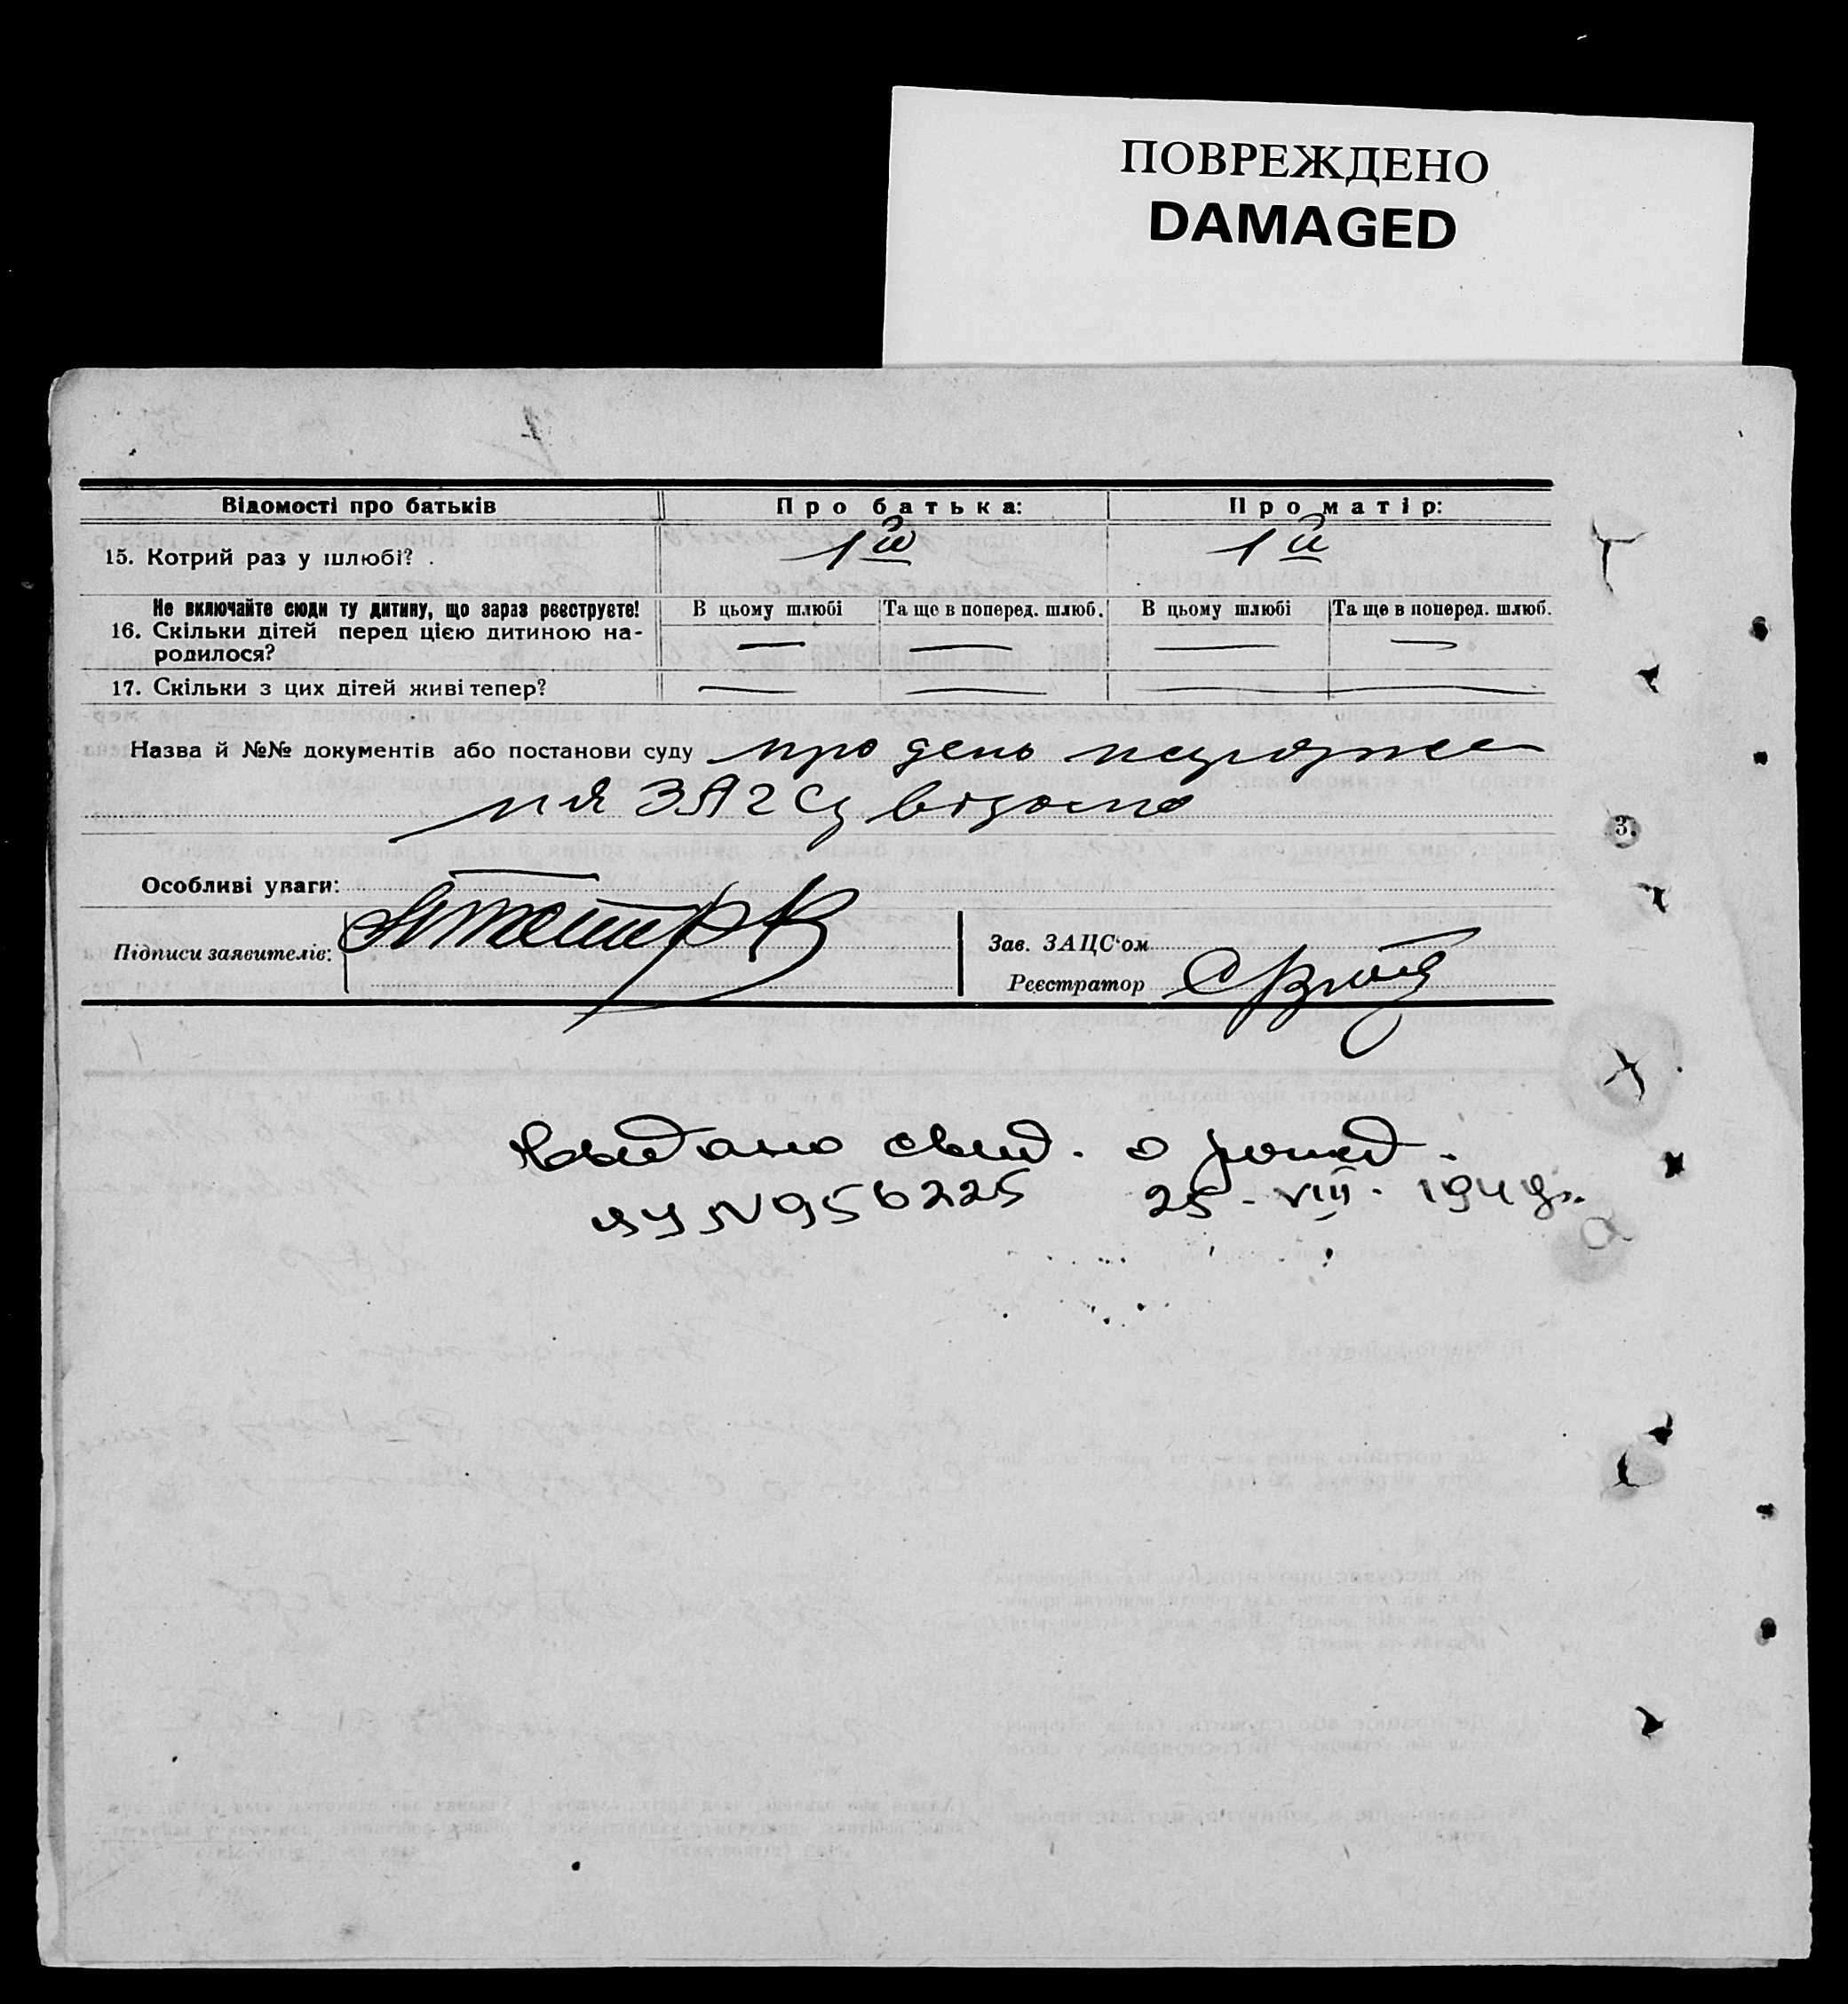 ПОВРЕЖДЕНО
DAMAGED
Відомості про батьків Про батька: Про матір:
15. Котрий раз у шлюбі? . 1й 1й
Не включайте сюди ту дитину, що зараз реєструєте! В цьому шлюбі Та ще в поперед. шлюб. В цьому шлюбі Та ще в поперед. шлюб.
16. Скільки дітей перед цією дитиною на-
родилося? — — — —
17. Скільки з цих дітей живі тепер? — — — —
Назва й №№ документів або постанови суду про день народжен
ня ЗАГСу відомо
3.
Особливі уваги:
Підписи заявителів:
Зав. ЗАЦС'ом
Реєстратор
Выдано свид. о рожд.
N 956225 25-VIII-194